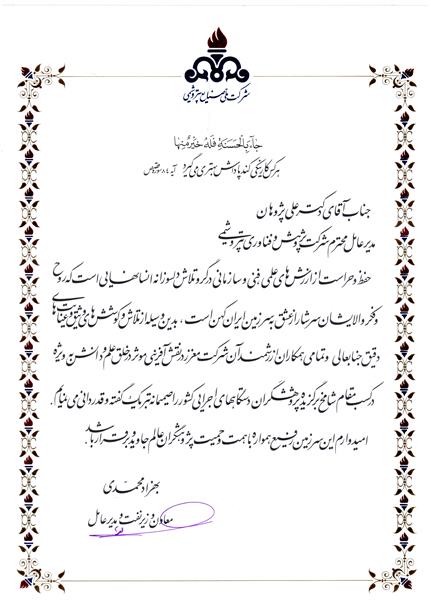 شرکت ملی صنایع پتروشیمی
جاء بالحسنة فله خیر منها
هرکس کار نیکی کند پاداش بهتری می گیرد آیه ۸۴ سوره قصص
جناب آقای دکتر علی پژوهان
مدیرعامل محترم شرکت پژوهش و فناوری پتروشیمی
حفظ و حراست از ارزش های علمی، فنی و سازمانی در گرو تلاش دلسوزانه انسانهایی است که روح
و فکر والایشان سرشار از عشق به سرزمین ایران کهن است، بدین وسیله از تلاش و کوشش های موثق و
دقیق جنابعالی و تمامی همکاران ارزشمند آن شرکت معزز در نقش آفرینی موثر در خلق علم و دانش بویژه
در کسب مقام شامخ برگزیده پژوهشگران دستگاههای اجرایی کشور را صمیمانه تبریک گفته و قدردانی می نمایم.
امیدوارم این سرزمین رفیع همواره با همت و حمیت پژوهشگران عالم جاوید و برقرار باشد.
بهزاد محمدی
معاون وزیر نفت و مدیرعامل